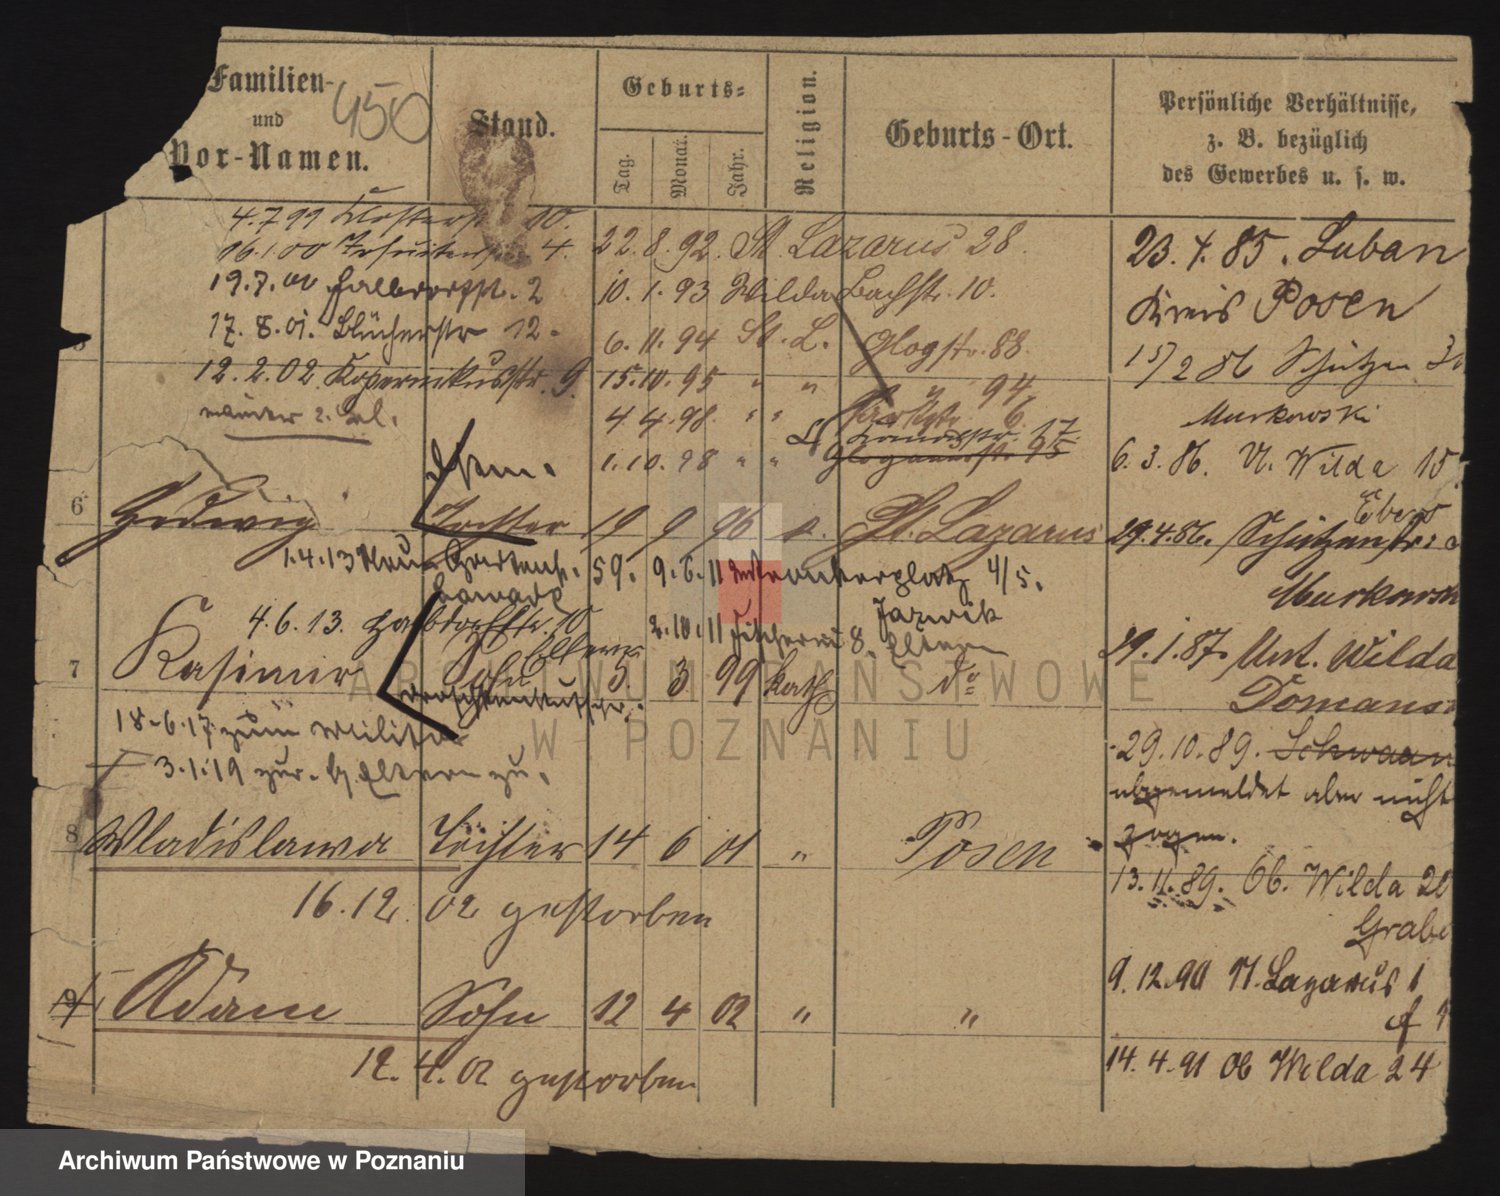 Familien-
und
Vor-Namen.
450
Stand.
Geburts=
Tag.
Monat.
Jahr.
Religion.
Geburts-Ort.
Persönliche Verhältnisse,
z. B. bezüglich
des Gewerbes u. s. w.
4.7.99 Klosterst 10.
16.1.00 Jesuitenstr. 4.
19.7.00 Halbdorfst. 2
17.8.01. Blücherstr 12.
12.2.02. Kopernikusstr. 9.
22.8.92. St. Lazarus 28.
10.1.93 Wilda Bachstr. 10.
6.11.94 St. L. Glogstr. 88.
15.10.95 " " " 94,
4.4.98. " " Parkst. 6.
1.10.98 " " Glogauerst. 95
17.
23.4.85. Luban
Kreis Posen
15/2 86 Schützen
Murkowski
6.3.86. U. Wilda 15
29.4.86. Schützenstr:
Murkowsk
29.1.87. Unt. Wilda
Domans
29.10.89. Schwaan
abgemeldet aber nicht
zogen.
13.11.89. Ob. Wilda 20
Grabe
9.12.90 St. Lazarus 1
14.4.91 Ob Wilda 24
6 Hedwig Tochter 19 9 96 k. St. Lazarus
1.4.13 59. 9.6.11 4/5.
4.6.13. Halbdorfstr. 10
2.10.11 Fischerei 8. Eltern
7 Kasimir Sohn 5. 3 99 kath do
Droschkenkutscher.
18.6.17. zum Militär
3.1.19 zur. b. Eltern zu.
8 Wladislawa Tochter 14 6 01 " Posen
16.12. 02 gestorben
9 Adam Sohn 12 4 02 " "
12.4.02 gestorben
ARCHIWUM PAŃSTWOWE
W POZNANIU
Archiwum Państwowe w Poznaniu